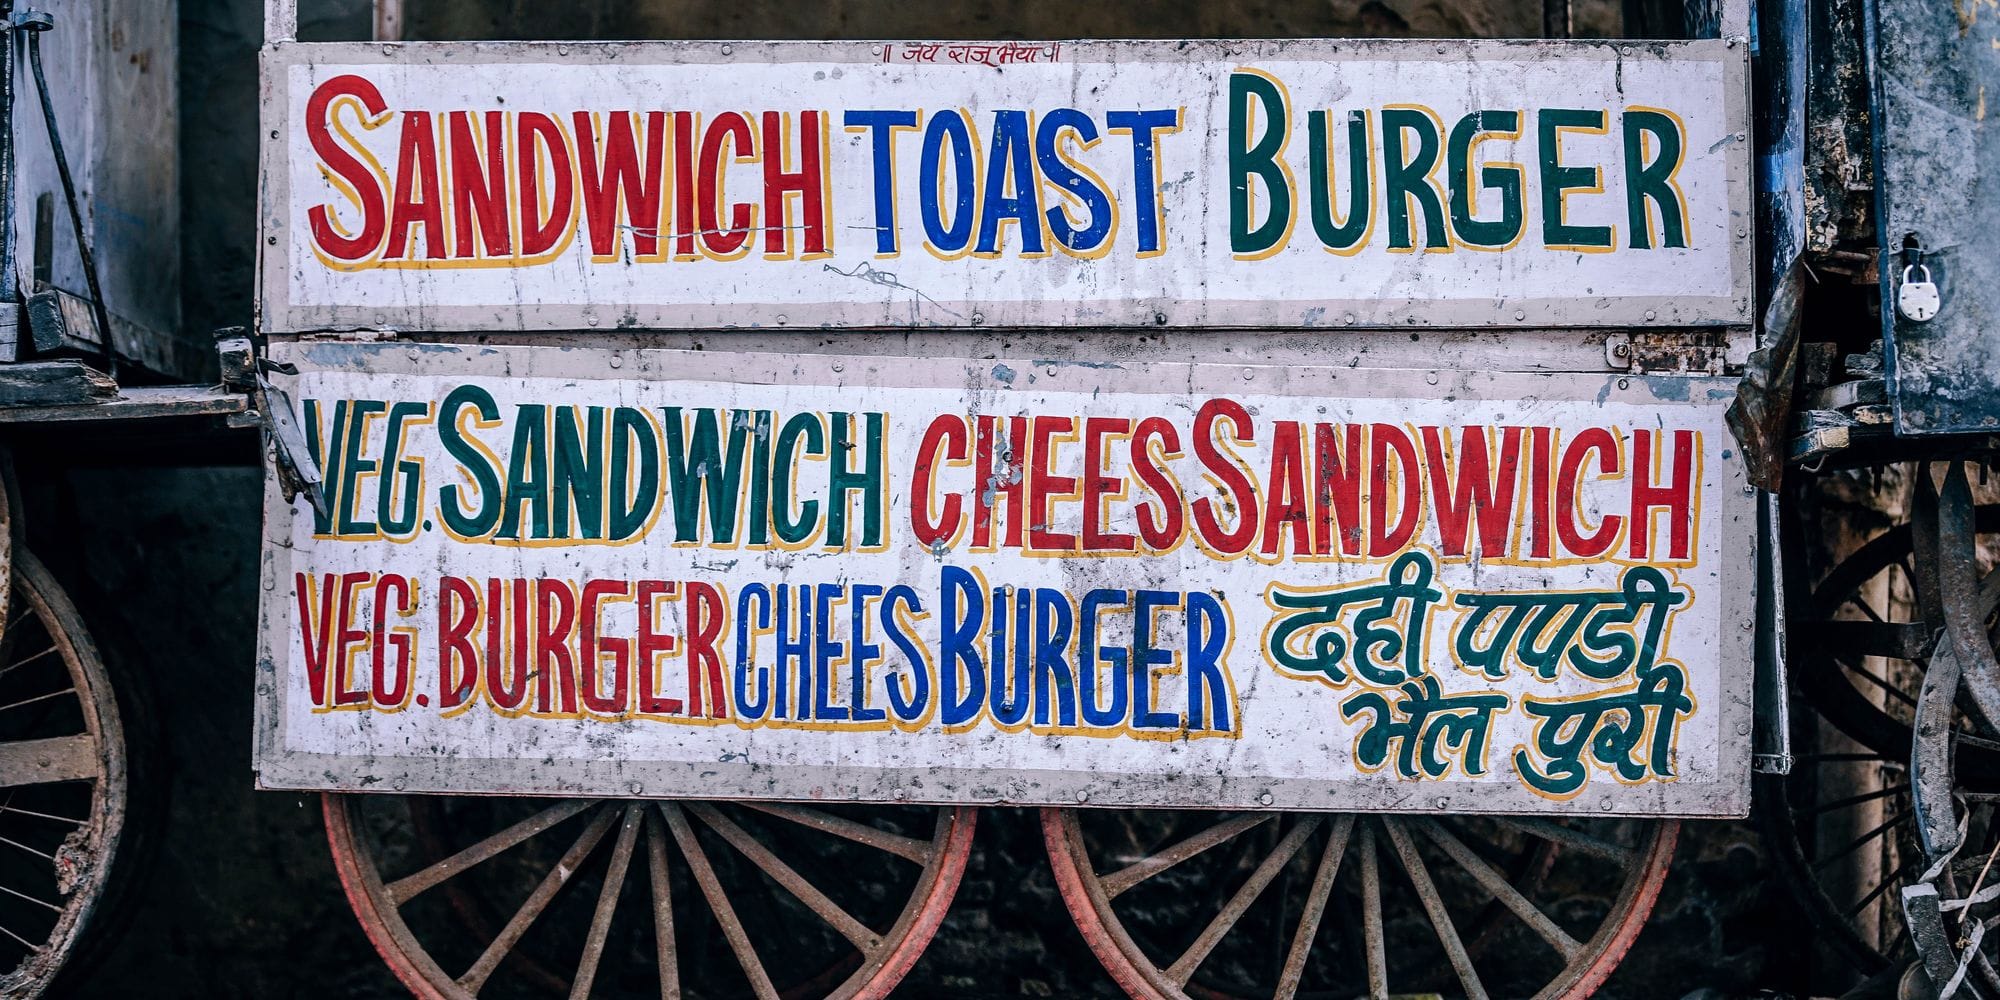 ॥ जय राजू भैया ॥
SANDWICH TOAST BURGER
VEG. SANDWICH CHEES SANDWICH
VEG. BURGER CHEES BURGER दही पपडी
भैल पुरी